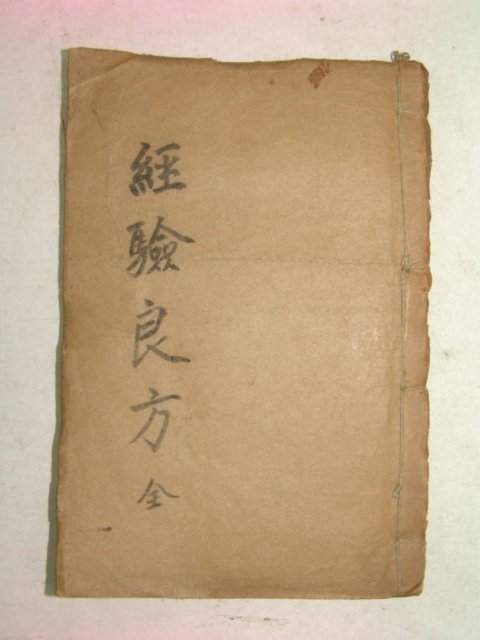 經驗良方全